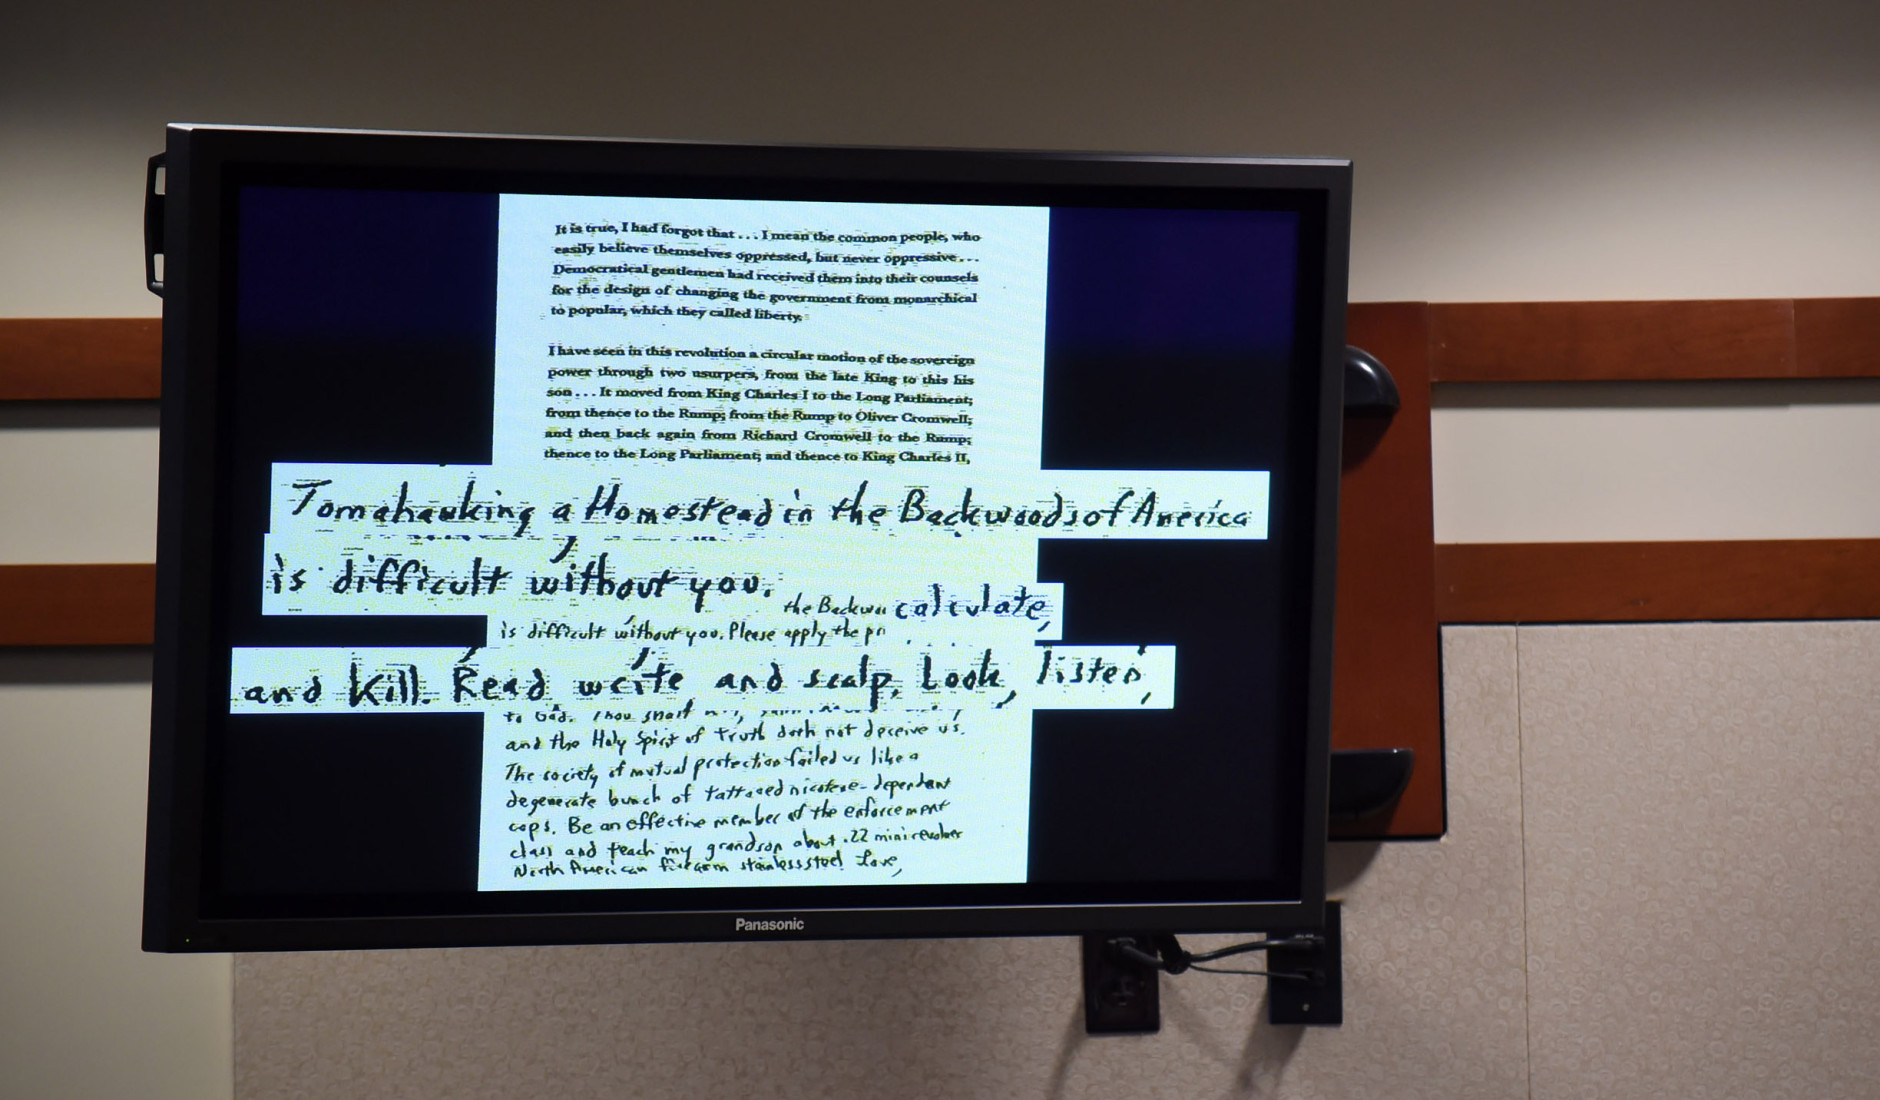 It is true, I had forgot that . . . I mean the common people, who
easily believe themselves oppressed, but never oppressive . . .
Democratical gentlemen had received them into their counsels
for the design of changing the government from monarchical
to popular, which they called liberty.
I have seen in this revolution a circular motion of the sovereign
power through two usurpers, from the late King to this his
son . . . It moved from King Charles I to the Long Parliament;
from thence to the Rump; from the Rump to Oliver Cromwell;
and then back again from Richard Cromwell to the Rump;
thence to the Long Parliament; and thence to King Charles II,
Tomahawking a Homestead in the Backwoods of America
is difficult without you.
the Backwo calculate,
is difficult without you. Please apply the pri
and kill. Read write and scalp. Look, listen,
to God. Thou shalt
and the Holy Spirit of Truth doth not deceive us.
The society of mutual protection failed us like a
degenerate bunch of tattooed nicotene-dependant
cops. Be an effective member of the enforcement
class and teach my grandson about .22 mini revolver
North American firearm stainless steel. Love,
Panasonic